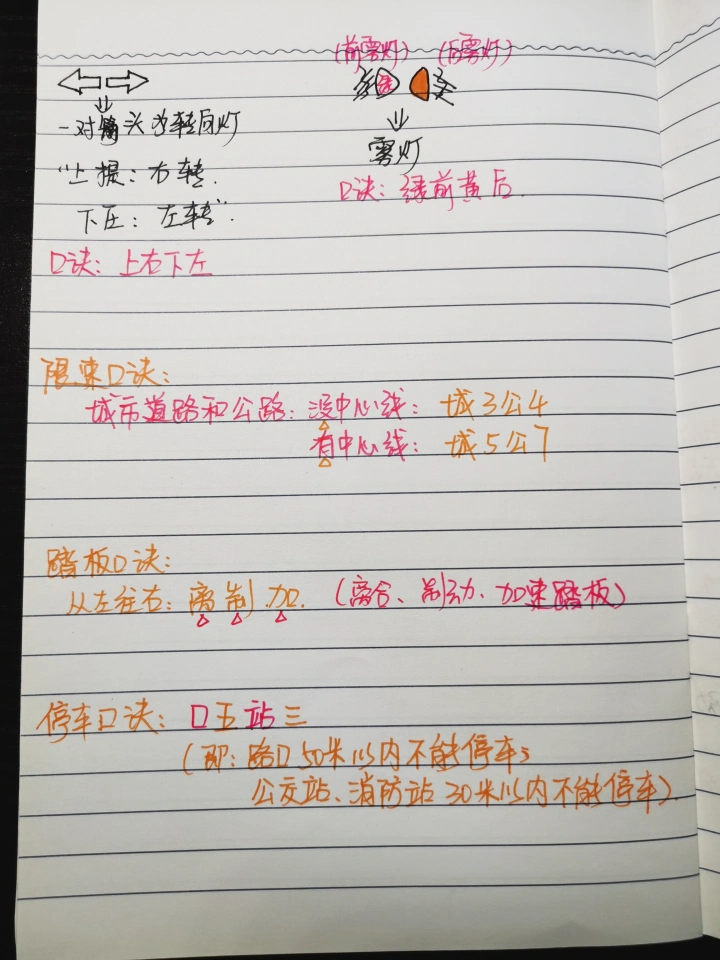 (前雾灯) (后雾灯)
一对箭头为转向灯
"上提：右转.
下压：左转".
口诀：上右下左
雾灯
口诀：绿前黄后.
限速口诀：
城市道路和公路：没中心线：城3公4
有中心线：城5公7
踏板口诀：
从左往右：离 制 加. (离合、制动、加速踏板)
停车口诀：口五站三
(即：路口50米以内不能停车;
公交站、消防站30米以内不能停车).